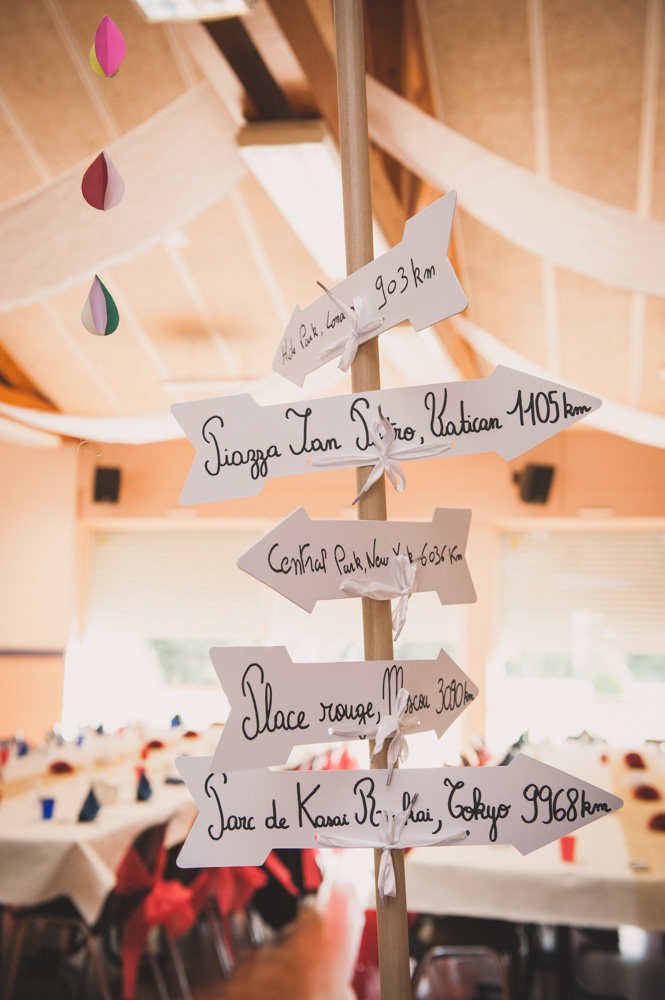 Hyde Park, London 903 km
Piazza San Pietro, Vatican 1105 km
Central Park, New York 6036 km
Place rouge, Moscou 3090 km
Parc de Kasai Rinkai, Tokyo 9968 km